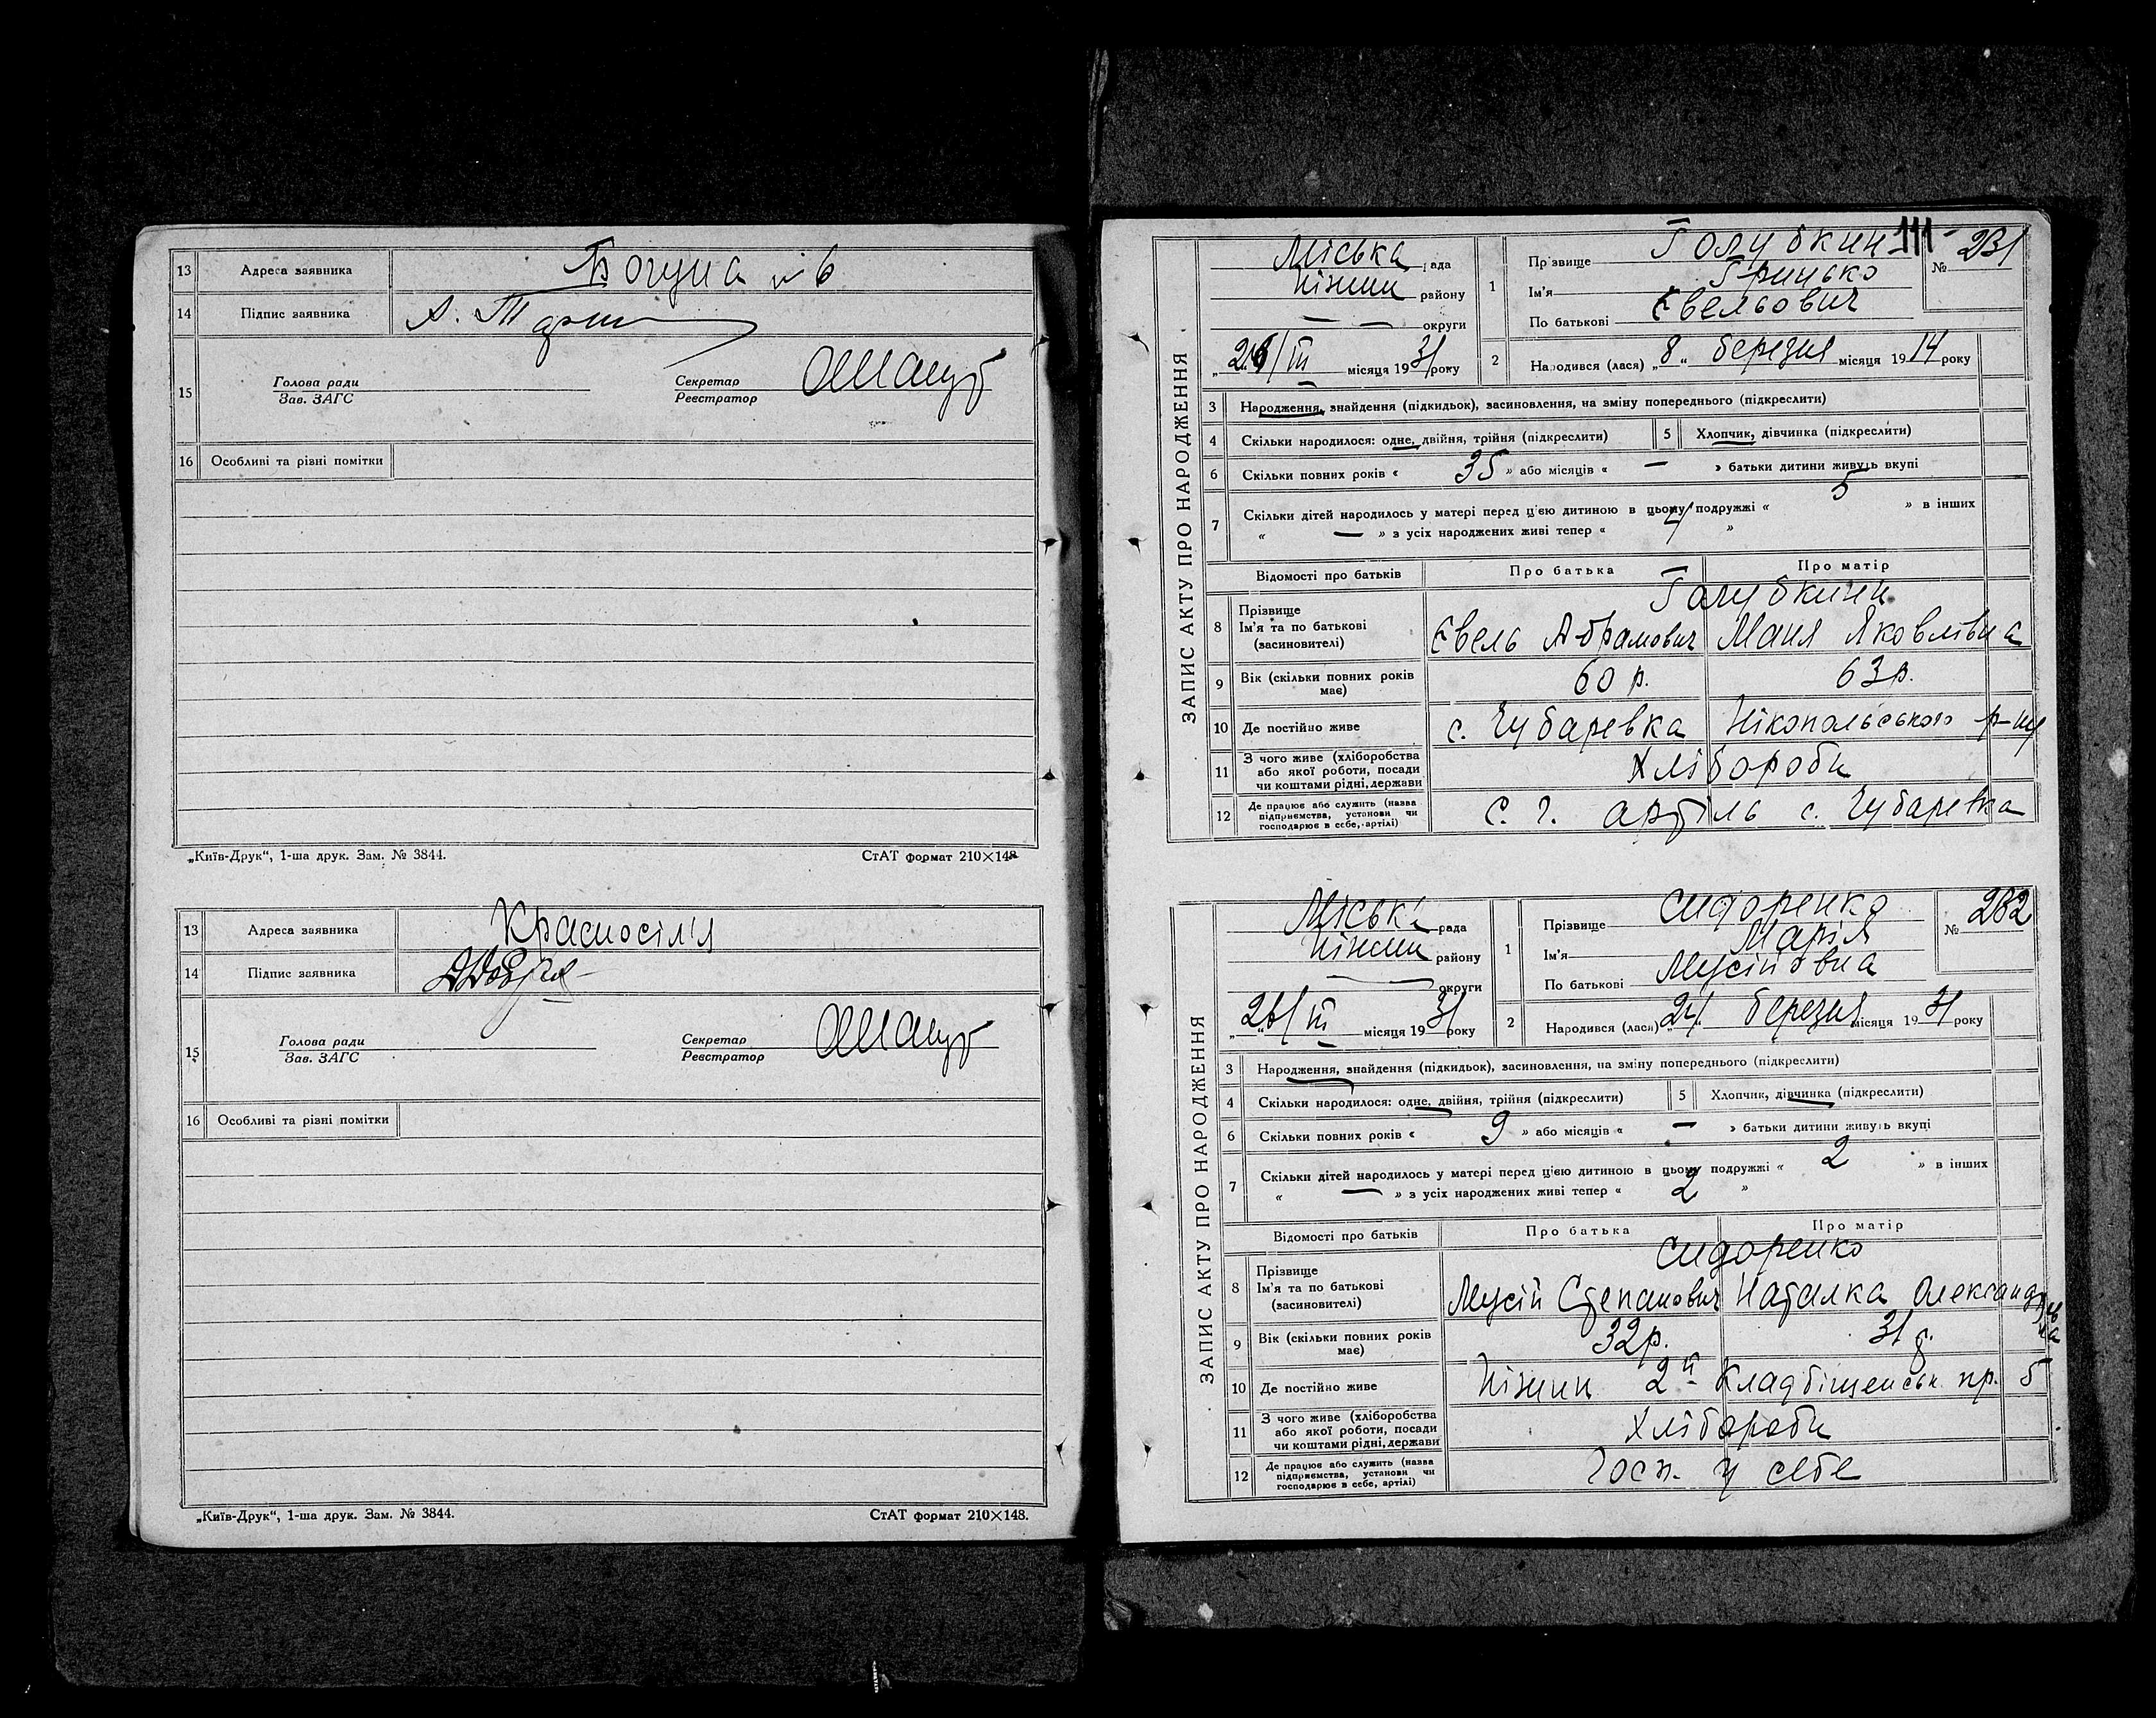 13 Адреса заявника Богуна № 6
14 Підпис заявника А.
15 Голова ради Секретар
Зав. ЗАГС Реєстратор
16 Особливі та різні помітки
„Київ-Друк“, 1-ша друк. Зам. № 3844. СтАТ формат 210×148
13 Адреса заявника Красносіл'я
14 Підпис заявника
15 Голова ради Секретар
Зав. ЗАГС Реєстратор
16 Особливі та різні помітки
„Київ-Друк“, 1-ша друк. Зам. № 3844. СтАТ формат 210×148.
111
ЗАПИС АКТУ ПРО НАРОДЖЕННЯ
Міська рада
Ніжин району
— — округи
„26/III місяця 1931 року
1 Прізвище Голубкин № 231
Ім'я Грицько
По батькові Євельович
2 Народився (лася) „8“ березня місяця 1914 року
3 Народження, знайдення (підкидьок), засиновлення, на зміну попереднього (підкреслити)
4 Скільки народилося: одне, двійня, трійня (підкреслити) 5 Хлопчик, дівчинка (підкреслити)
6 Скільки повних років « 35 » або місяців « — » батьки дитини живуть вкупі
7 Скільки дітей народилось у матері перед цією дитиною в цьому подружжі « 5 » в інших
« — » з усіх народжених живі тепер « 4 »
Відомості про батьків Про батька Про матір
8 Прізвище Голубкини
Ім'я та по батькові Євель Абрамович Маня Яковлівна
(засиновителі)
9 Вік (скільки повних років має) 60 р. 63 р.
10 Де постійно живе с. Чубаревка Нікопольського р-ну
11 З чого живе (хліборобства або якої роботи, посади чи коштами рідні, держави Хлібороби
12 Де працює або служить (назва підприємства, установи чи господарює в себе, артілі) С. Г. артіль с. Чубаревка
ЗАПИС АКТУ ПРО НАРОДЖЕННЯ
Міська рада
Ніжин району
— округи
„26/III місяця 1931 року
1 Прізвище Сидоренко № 232
Ім'я Марія
По батькові Мусіївна
2 Народився (лася) „24“ березня місяця 1931 року
3 Народження, знайдення (підкидьок), засиновлення, на зміну попереднього (підкреслити)
4 Скільки народилося: одне, двійня, трійня (підкреслити) 5 Хлопчик, дівчинка (підкреслити)
6 Скільки повних років « 9 » або місяців « — » батьки дитини живуть вкупі
7 Скільки дітей народилось у матері перед цією дитиною в цьому подружжі « 2 » в інших
« — » з усіх народжених живі тепер « 2 »
Відомості про батьків Про батька Про матір
8 Прізвище Сидоренко
Ім'я та по батькові Мусій Степанович Наталка Олександрівна
(засиновителі)
9 Вік (скільки повних років має) 32 р. 31 р.
10 Де постійно живе Ніжин 2й Кладбіщенськ. пр. 5
11 З чого живе (хліборобства або якої роботи, посади чи коштами рідні, держави Хлібороби
12 Де працює або служить (назва підприємства, установи чи господарює в себе, артілі) Госп. у себе